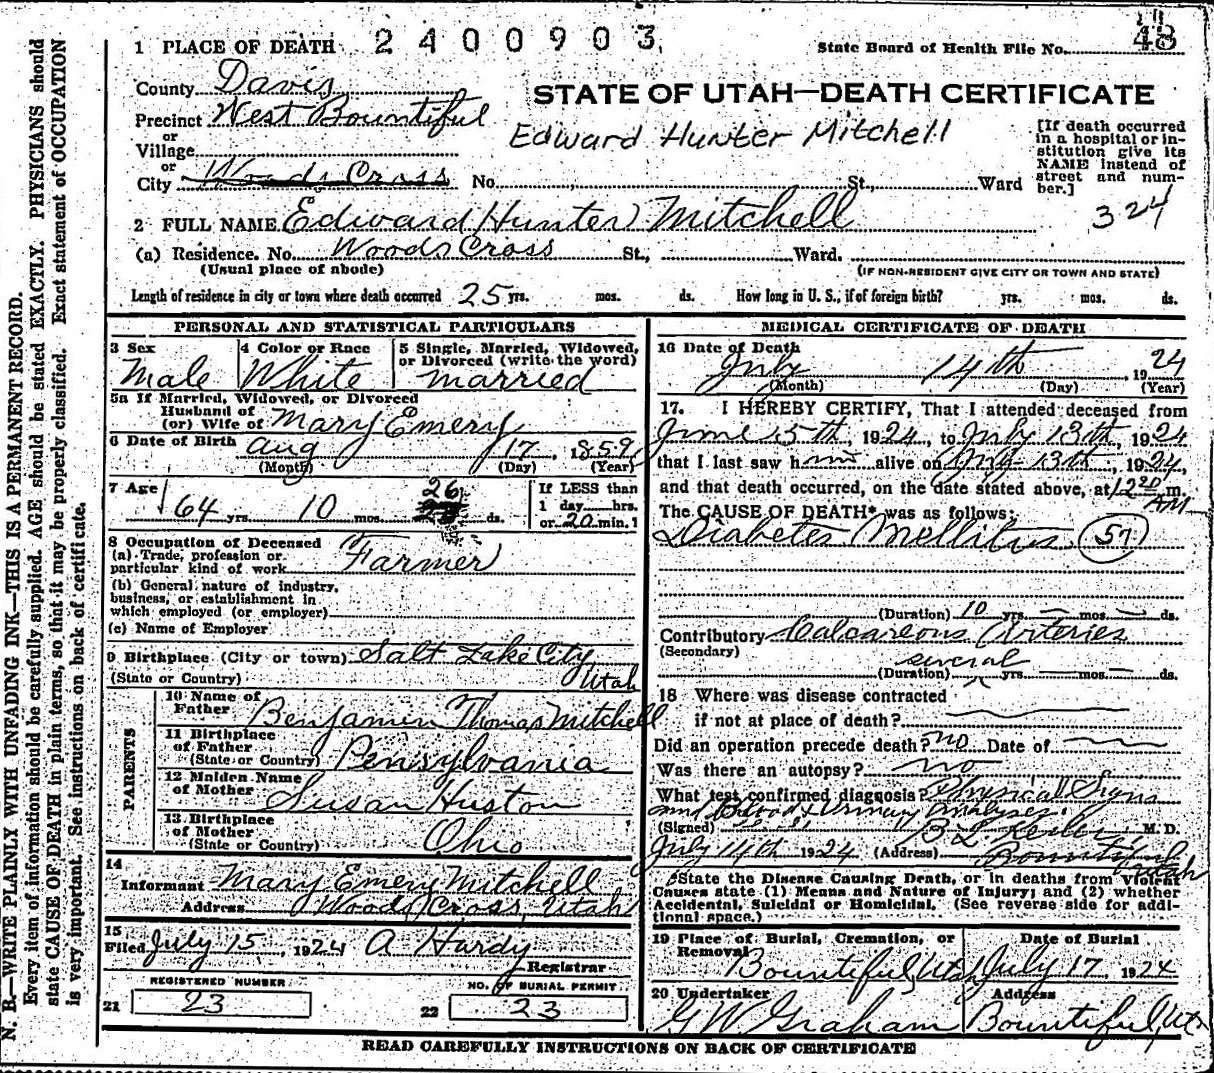 1 PLACE OF DEATH 2400903 State Board of Health File No. 48
County Davis
STATE OF UTAH—DEATH CERTIFICATE
Precinct West Bountiful
Edward Hunter Mitchell
or
Village
or
City Woods Cross No. St., Ward
[If death occurred
in a hospital or in-
stitution give its
NAME instead of
street and num-
ber.]
324
2 FULL NAME Edward Hunter Mitchell
(a) Residence. No. Woods Cross St., Ward.
(Usual place of abode) (IF NON-RESIDENT GIVE CITY OR TOWN AND STATE)
Length of residence in city or town where death occurred 25 yrs. mos. ds. How long in U. S., if of foreign birth? yrs. mos. ds.
PERSONAL AND STATISTICAL PARTICULARS
3 Sex 4 Color or Race 5 Single, Married, Widowed,
or Divorced (write the word)
Male White married
5a If Married, Widowed, or Divorced
Husband of
(or) Wife of Mary Emery
6 Date of Birth Aug 17, 1859
(Month) (Day) (Year)
7 Age 64 yrs. 10 mos. 26 ds.
If LESS than
1 day hrs.
or 20 min.?
8 Occupation of Deceased
(a) Trade, profession or
particular kind of work Farmer
(b) General nature of industry,
business, or establishment in
which employed (or employer)
(c) Name of Employer
9 Birthplace (City or town) Salt Lake City
(State or Country) Utah
PARENTS
10 Name of
Father Benjamin Thomas Mitchell
11 Birthplace
of Father
(State or Country) Pensylvania
12 Maiden Name
of Mother Susan Huston
13 Birthplace
of Mother
(State or Country) Ohio
14
Informant Mary Emery Mitchell
Address Woods Cross, Utah
15
Filed July 15, 1924 A Hardy
Registrar
REGISTERED NUMBER NO. OF BURIAL PERMIT
21 23 22 23
MEDICAL CERTIFICATE OF DEATH
16 Date of Death
July 14th, 1924
(Month) (Day) (Year)
17. I HEREBY CERTIFY, That I attended deceased from
June 5th, 1924, to July 13th, 1924
that I last saw him alive on July 13th, 1924,
and that death occurred, on the date stated above, at 12 20 m.
AM
The CAUSE OF DEATH* was as follows:
Diabetes Mellitus (57)
(Duration) 10 yrs. — mos. — ds.
Contributory Calcareous Arteries
(Secondary)
(Duration) several yrs. — mos. — ds.
18 Where was disease contracted
if not at place of death?
Did an operation precede death? no Date of
Was there an autopsy? no
What test confirmed diagnosis? Physical Signs
and Blood & Urinary analyses
(Signed) M. D.
July 14th 1924 (Address) Bountiful
Utah
*State the Disease Causing Death, or in deaths from Violent
Causes state (1) Means and Nature of Injury; and (2) whether
Accidental, Suicidal or Homicidal. (See reverse side for addi-
tional space.)
19 Place of Burial, Cremation, or
Removal Date of Burial
Bountiful, Utah July 17, 1924
20 Undertaker Address
G W Graham Bountiful, Ut
READ CAREFULLY INSTRUCTIONS ON BACK OF CERTIFICATE
N. B.—WRITE PLAINLY WITH UNFADING INK—THIS IS A PERMANENT RECORD.
Every item of information should be carefully supplied. AGE should be stated EXACTLY. PHYSICIANS should
state CAUSE OF DEATH in plain terms, so that it may be properly classified. Exact statement of OCCUPATION
is very important. See instructions on back of certificate.